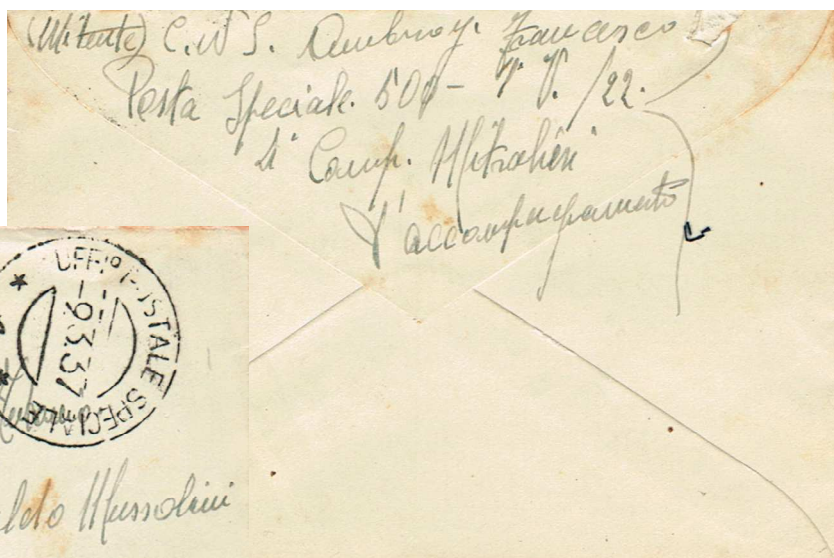 (Mitente) C.N S. Ambroy. Francesco
Posta Speciale. 500 - /22.
4ª Comp. Mitralieri
d'accompagnamento
UFF.º POSTALE SPECIALE
-9.3.37
ldo Mussolini